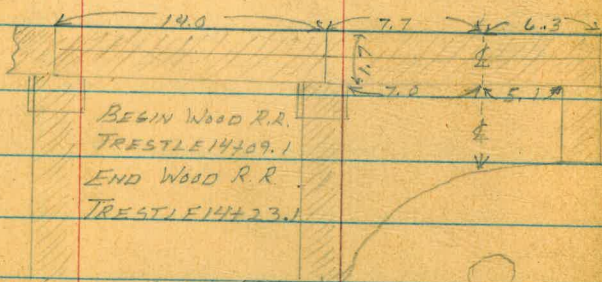 14.0 7.7 6.3
1.7
7.0 5.1
℄
℄
BEGIN WOOD R.R.
TRESTLE 14+09.1
END WOOD R.R.
TRESTLE 14+23.1